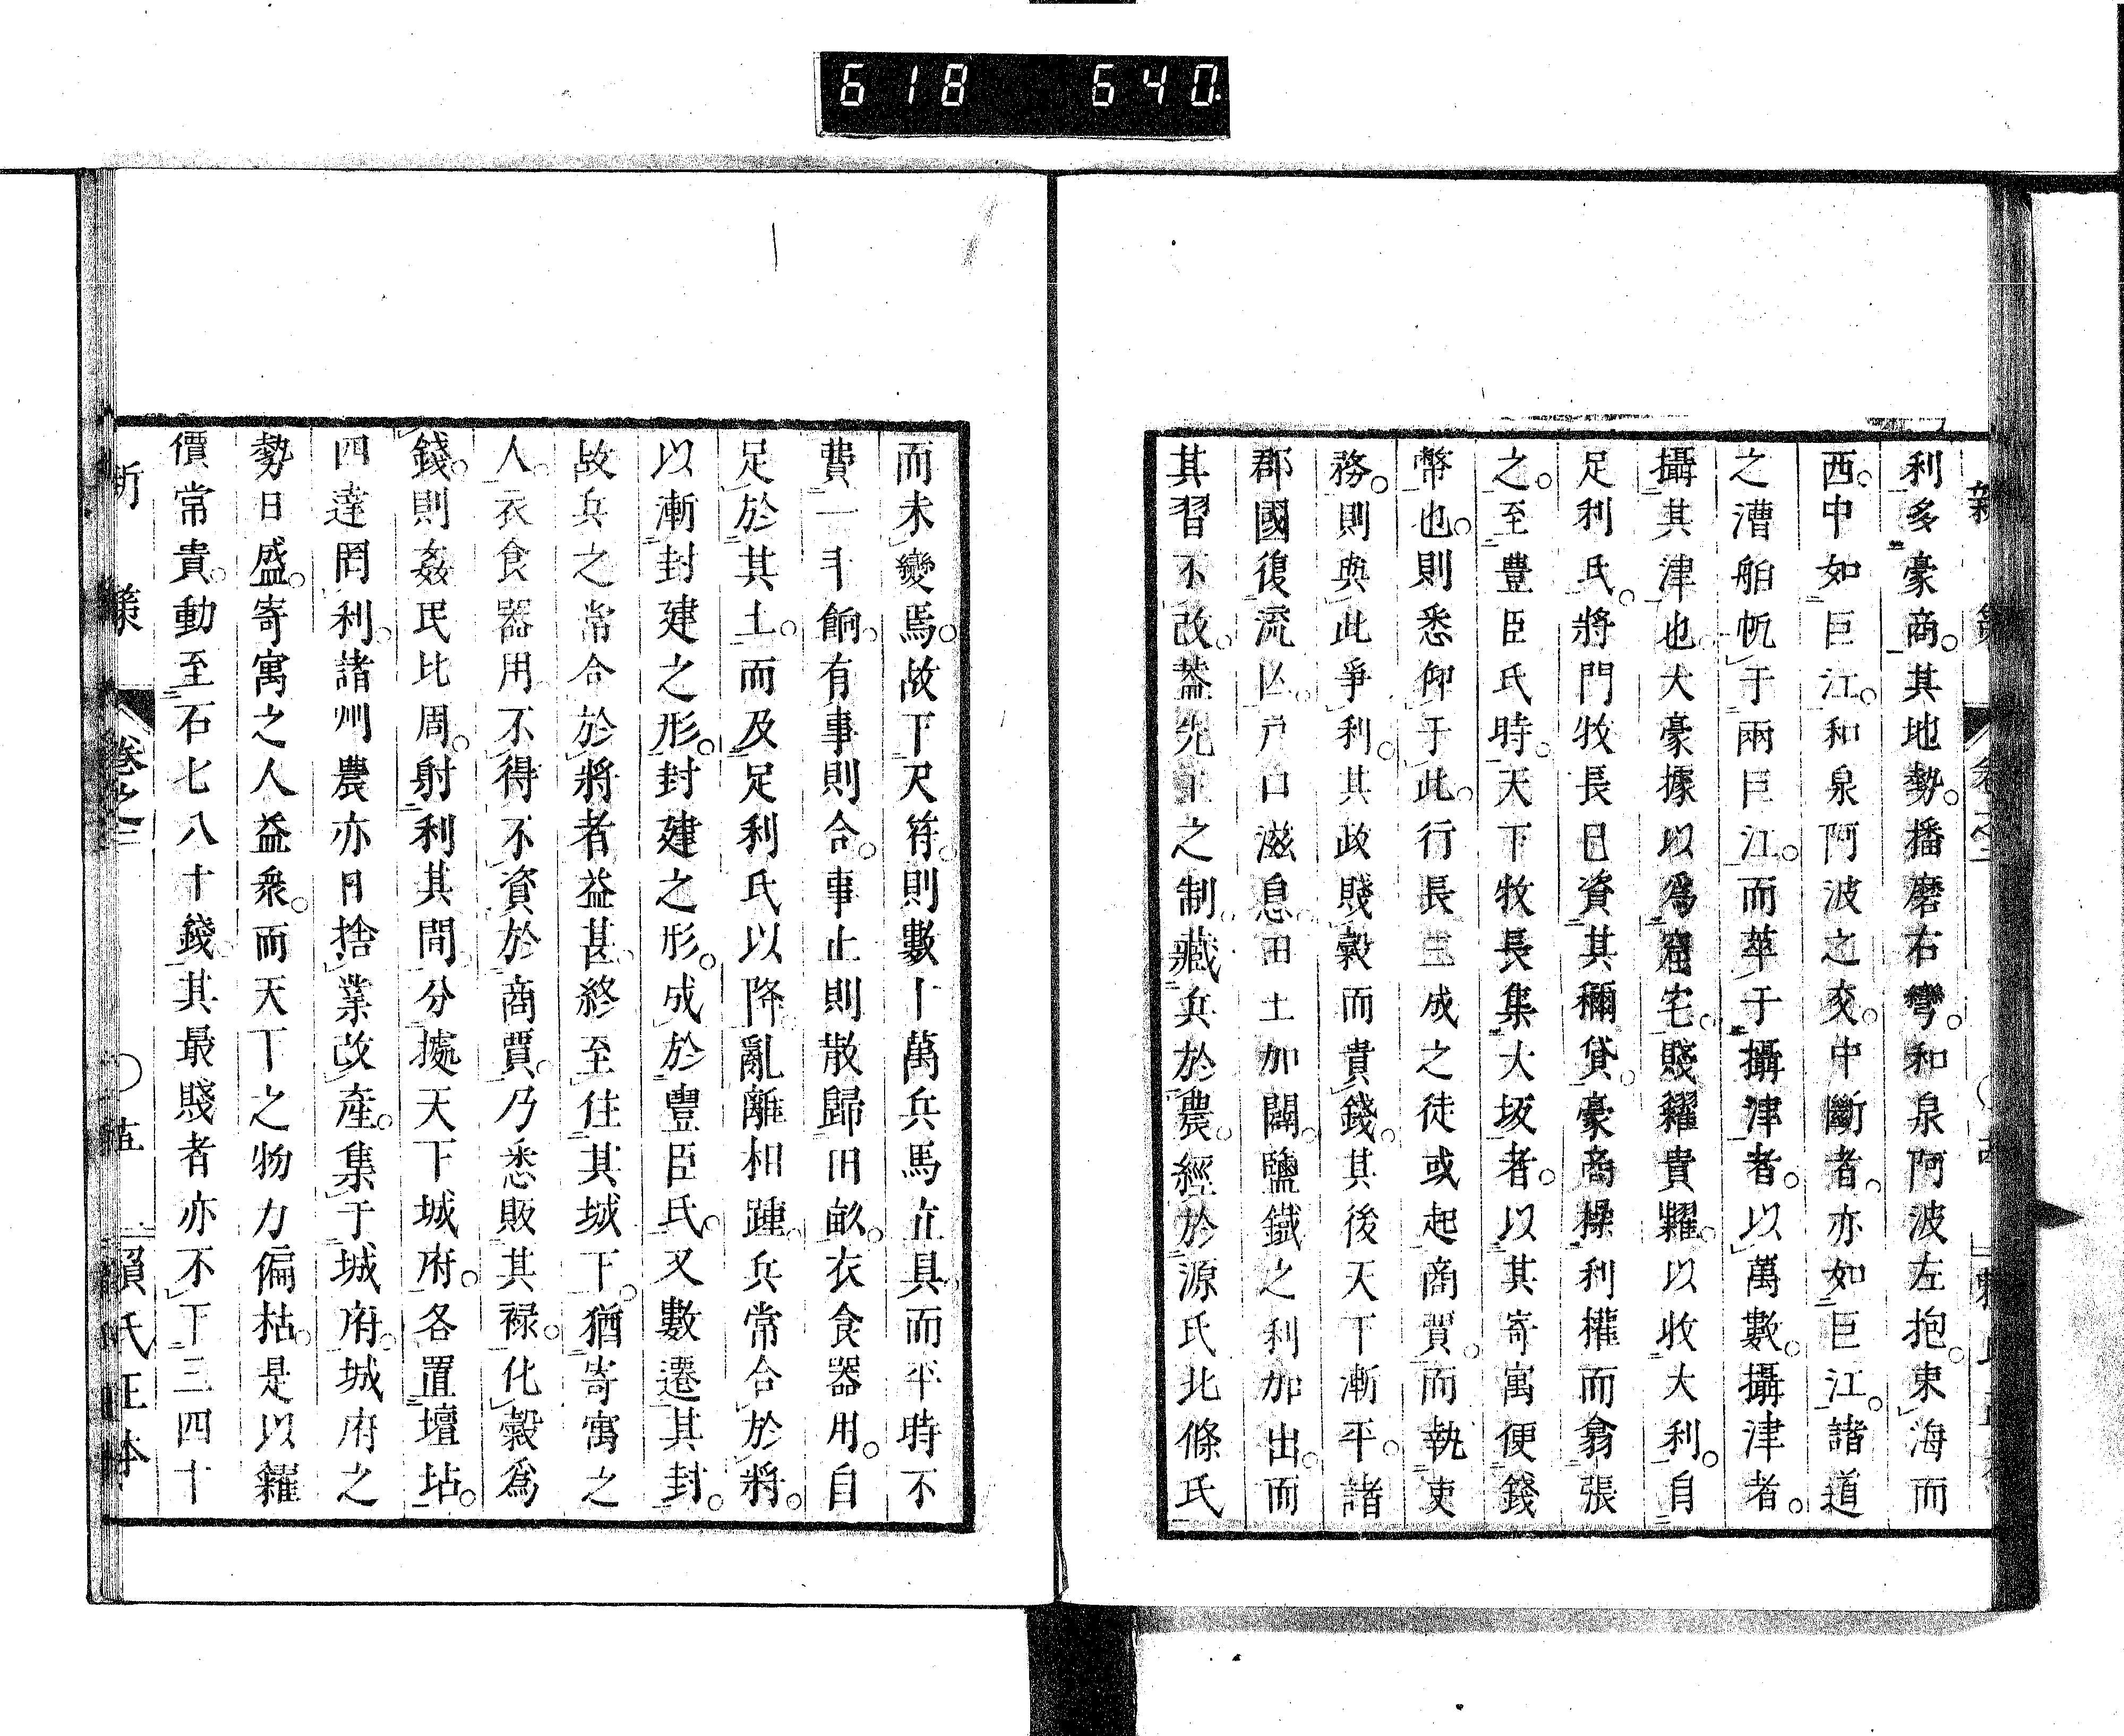 618 640
利多豪商。其地勢。播磨右彎。和泉阿波左抱。東海而
西。中如巨江。和泉阿波之交。中斷者。亦如巨江。諸道
之漕舶帆于兩巨江。而萃于攝津者。以萬數。攝津者。
攝其津也。大豪據以爲窟宅。賤糴貴糶。以收大利。自
足利氏。將門牧長已資其禰貸。豪商操利權而翕張
之。至豊臣氏時。天下牧長集大坂者。以其寄寓便錢
幣也。則悉仰于此。行長三成之徒或起商買。而執吏
務。則與此爭利。其政賤穀而貴錢。其後天下漸平。諸
郡國復流亾。戸口滋息。田土加闢。鹽鐵之利加出。而
其習不改。葢先王之制。藏兵於農。經於源氏北條氏
而未變焉。故下尺符。則數十萬兵馬立具。而平時不
費一斗餉。有事則合。事止則散歸田畝。衣食器用。自
足於其土。而及足利氏以降。亂離相踵。兵常合於將。
以漸封建之形。封建之形。成於豐臣氏。又數遷其封。
故兵之常合於將者益甚。終至住其城下。猶寄寓之
人。衣食器用。不得不資於商賈。乃悉販其祿。化穀爲
錢。則姦民比周。射利其間。分據天下城府。各置壇坫。
四達罔利。諸州農亦日捨業改產。集于城府。城府之
勢日盛。寄寓之人益衆。而天下之物力偏枯。是以糴
價常貴。動至石七八十錢。其最賤者亦不下三四十
新策 卷之二 〇五 賴氏正本